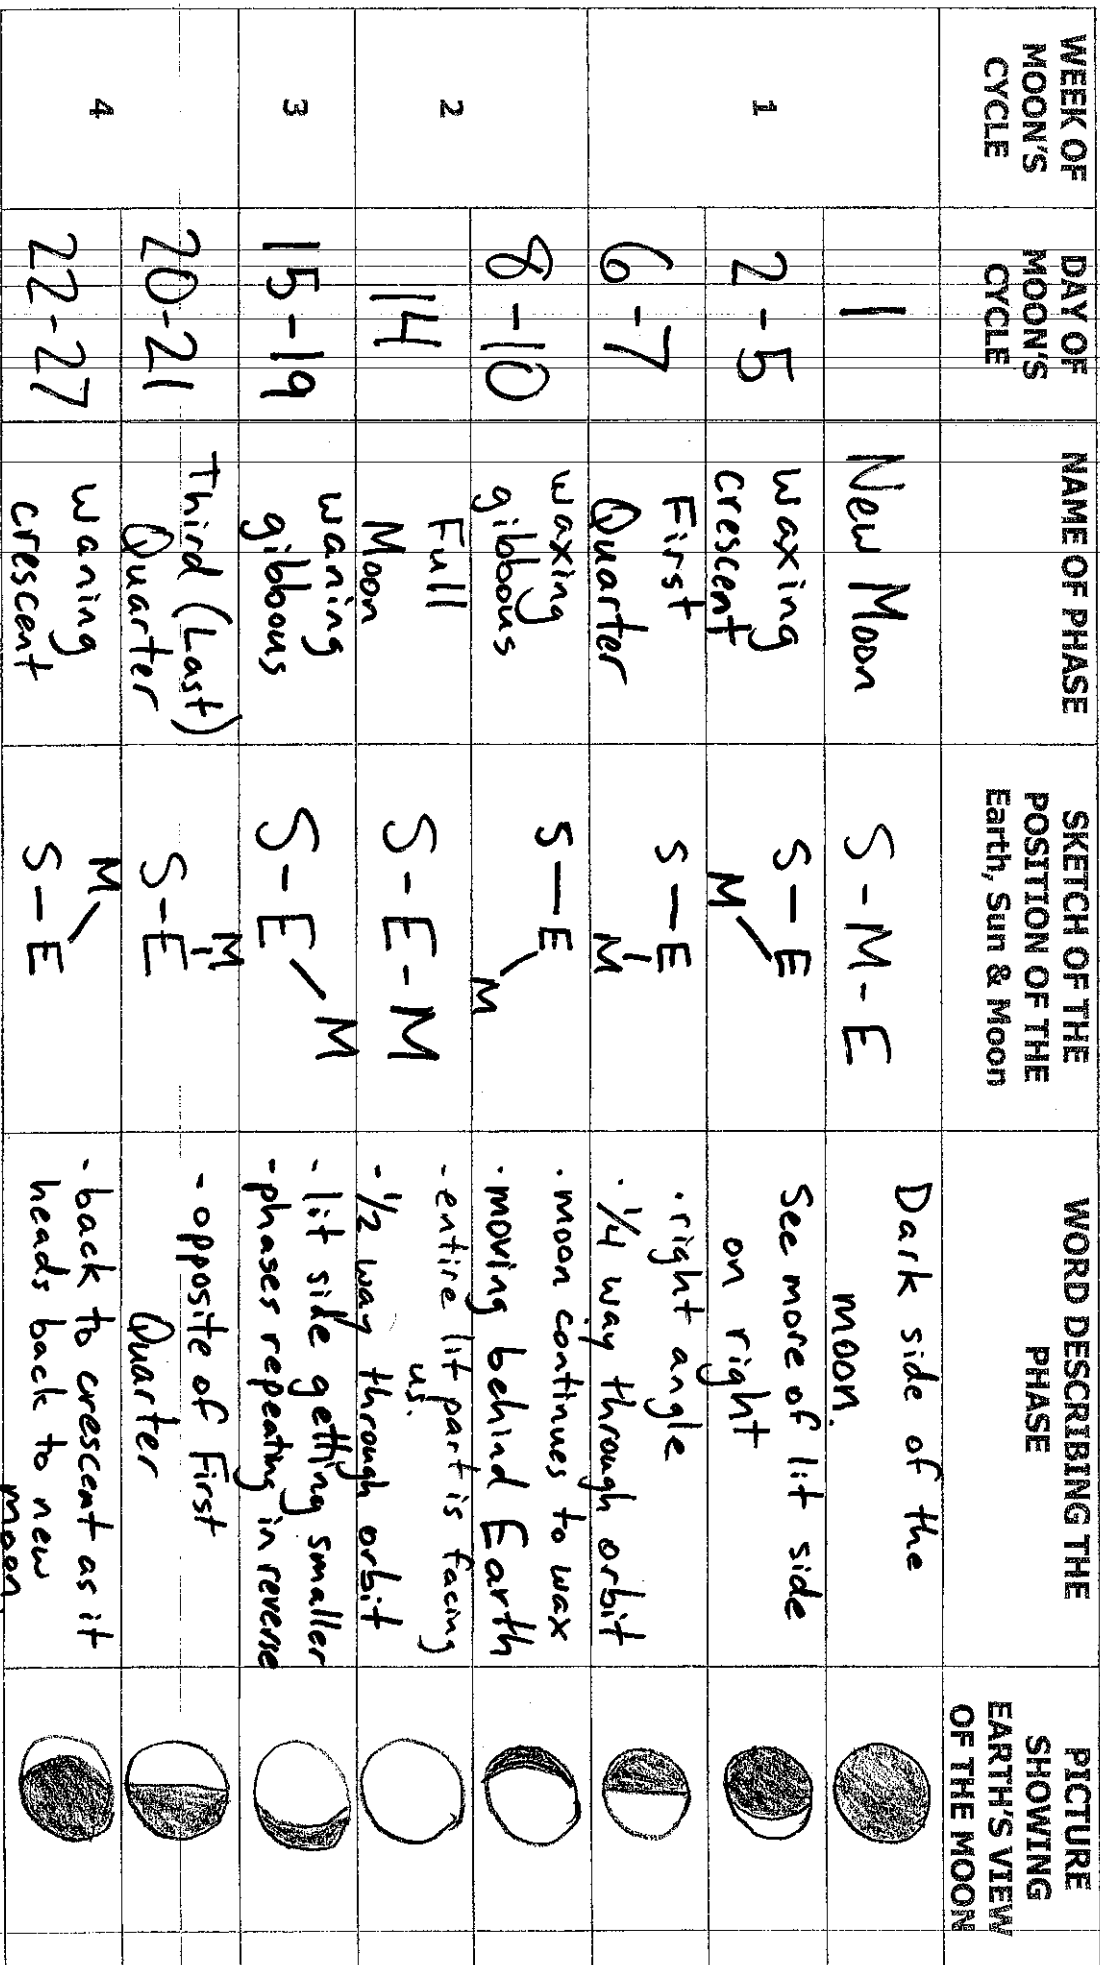 WEEK OF
MOON'S
CYCLE
DAY OF
MOON'S
CYCLE
NAME OF PHASE
SKETCH OF THE
POSITION OF THE
Earth, Sun & Moon
WORD DESCRIBING THE
PHASE
PICTURE
SHOWING
EARTH'S VIEW
OF THE MOON
1
1
New Moon
S - M - E
Dark side of the
moon.
2 - 5
waxing
crescent
S - E
M
See more of lit side
on right
6 - 7
First
Quarter
S - E
M
· right angle
· 1/4 way through orbit
2
8 - 10
waxing
gibbous
S - E
M
· moon continues to wax
· moving behind Earth
14
Full
Moon
S - E - M
- entire lit part is facing
us.
- 1/2 way through orbit
3
15 - 19
waning
gibbous
M
S - E
- lit side getting smaller
- phases repeating in reverse
4
20 - 21
Third (Last)
Quarter
M
S - E
- opposite of First
Quarter
22 - 27
waning
crescent
M
S - E
- back to crescent as it
heads back to new
moon.